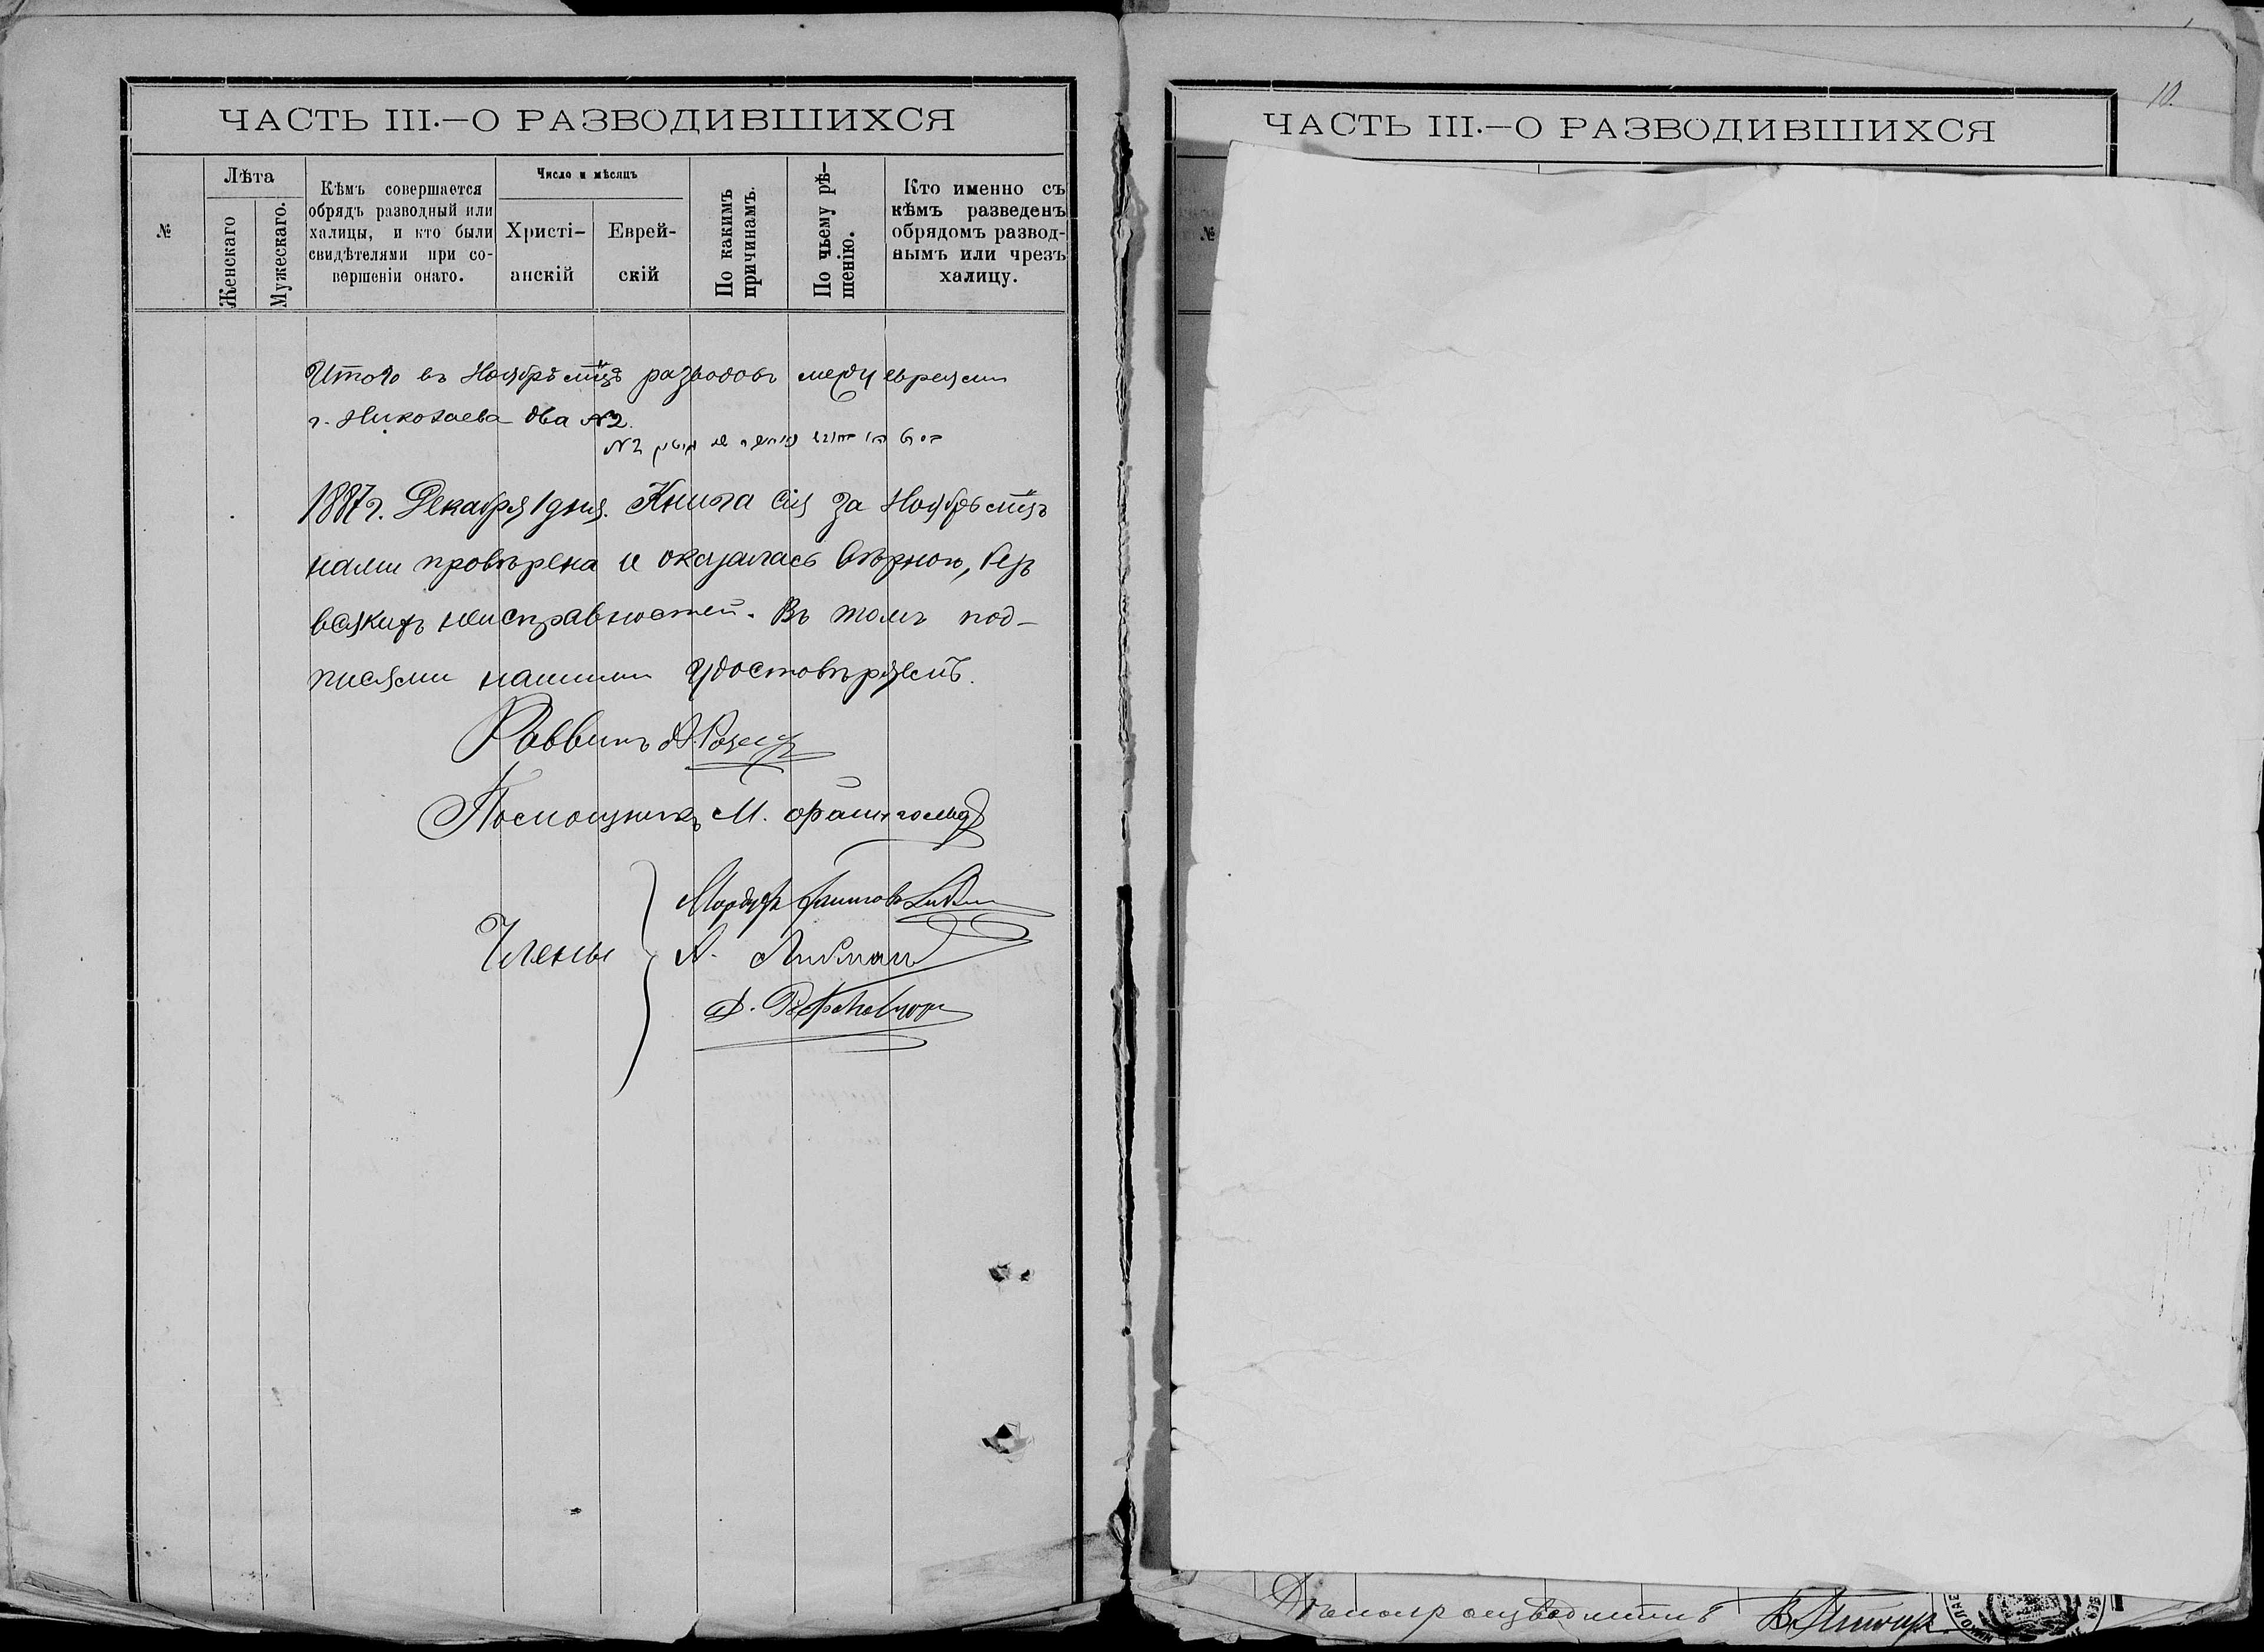 ЧАСТЬ III.—О РАЗВОДИВШИХСЯ
№
Лѣта
Женскаго
Мужескаго.
Кѣмъ совершается
обрядъ разводный или
халицы, и кто были
свидѣтелями при со-
вершеніи онаго.
Число и мѣсяцъ
Христі-
анскій
Еврей-
скій
По какимъ
причинамъ.
По чьему рѣ-
шенію.
Кто именно съ
кѣмъ разведенъ
обрядомъ развод-
нымъ или чрезъ
халицу.
Итого въ Ноябрѣ мцѣ разводовъ между евреями
г. Николаева два №2.
№2
1887 г. Декабря 1 дня. Книга сія за Ноябрь мцъ
нами провѣрена и оказалась вѣрною, безъ
всякихъ неисправностей. Въ томъ под-
писями нашими удостовѣряемъ.
Раввинъ
Помощникъ М.
Члены
А. Либман
ЧАСТЬ III.—О РАЗВОДИВШИХСЯ
10.
№
Дѣлопроизводитель